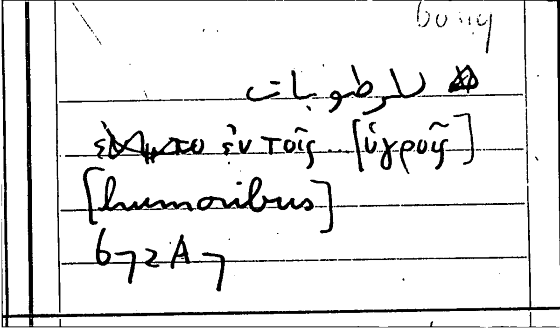 للرطوبات
ἐν τοῖς .. [ὑγροῖς]
[humoribus]
672A7